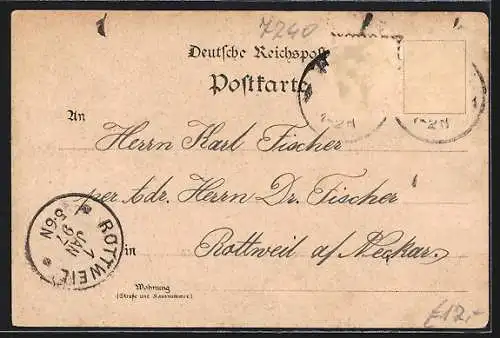 7240
Deutsche Reichspost
Postkarte
An
Herrn Karl Fischer
per Adr. Herrn Dr. Fischer
in Rottweil a/ Neckar.
Wohnung
(Straße und Hausnummer)
ROTTWEIL
1
JAN
97
5-6N
12-